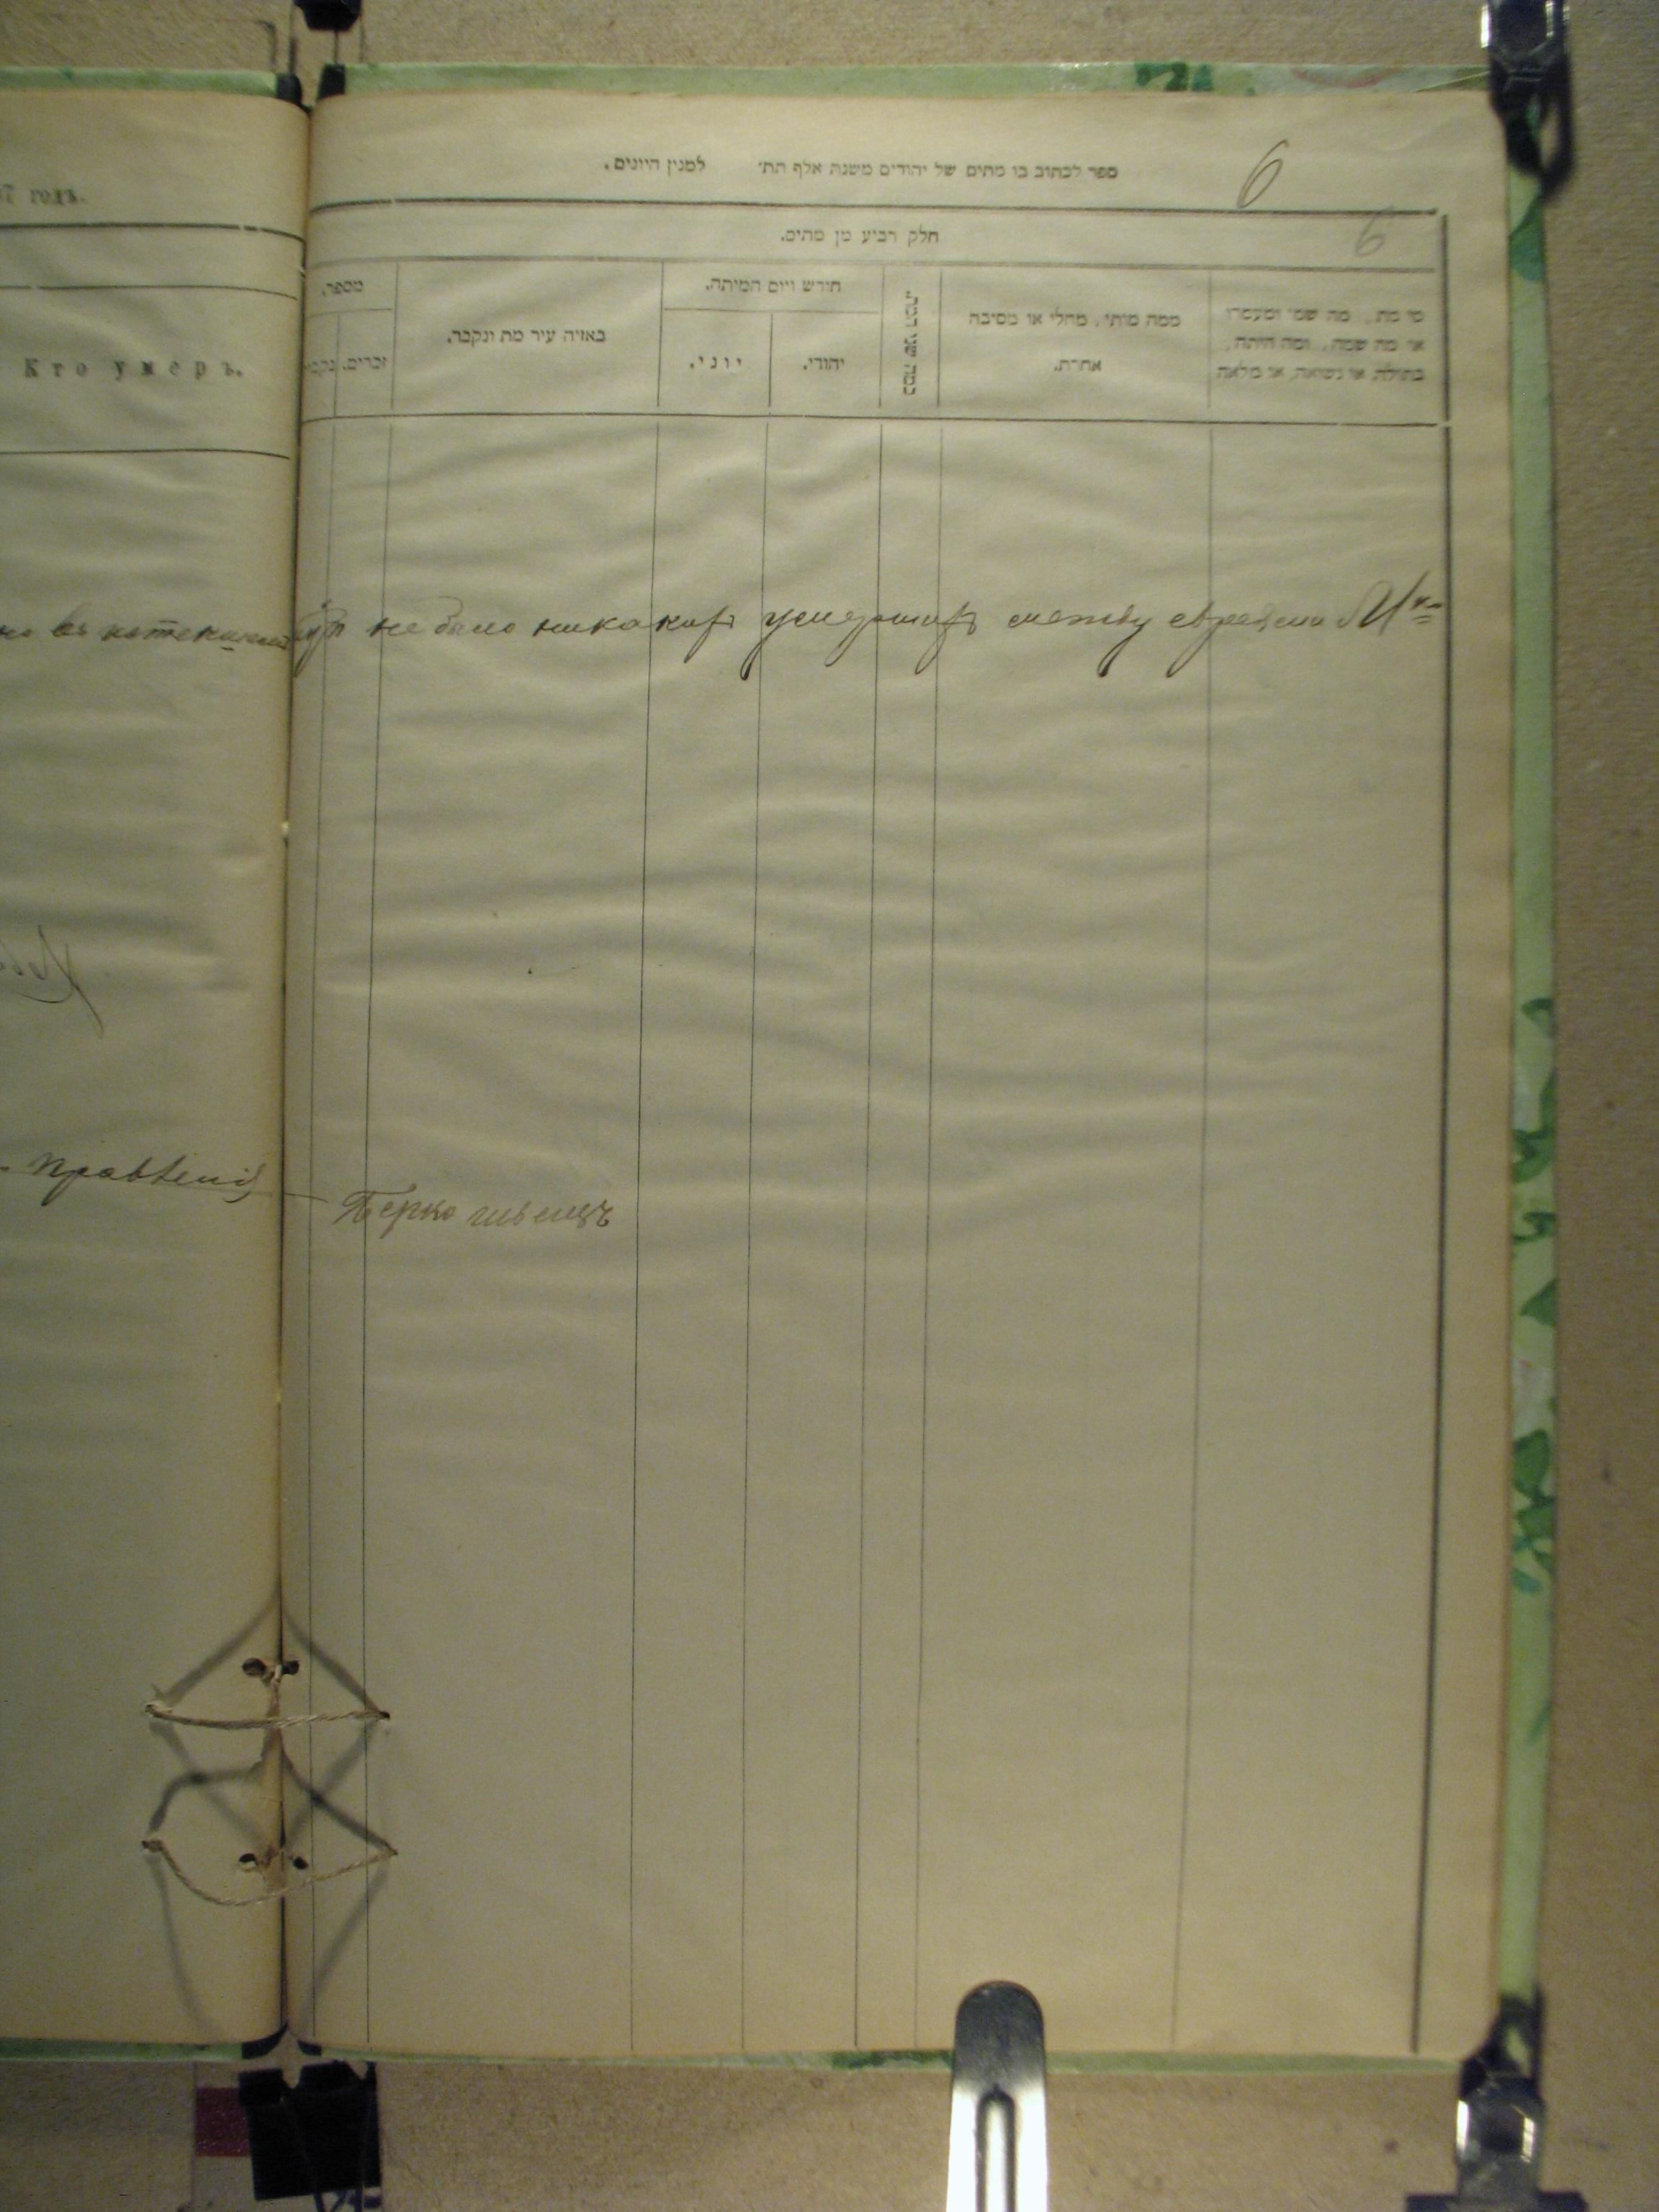 7 годъ.
Кто умеръ.
правленія
6
ספר לכתוב בו מתים של יהודים משנת אלף תת׳ למנין היונים.
6
חלק רביע מן מתים.
מי מת, מה שמו ומעמדו או מה שמה, ומה היתה, בתולה, או נשואה, או מלאה
ממה מותו, מחלי או מסיבה אחרת.
כמה שני
חודש ויום המיתה.
יהודי.
יוני.
באיזה עיר מת ונקבר.
מספר.
זכרים.
не было никакихъ умершихъ между евреями
Берко Швецъ